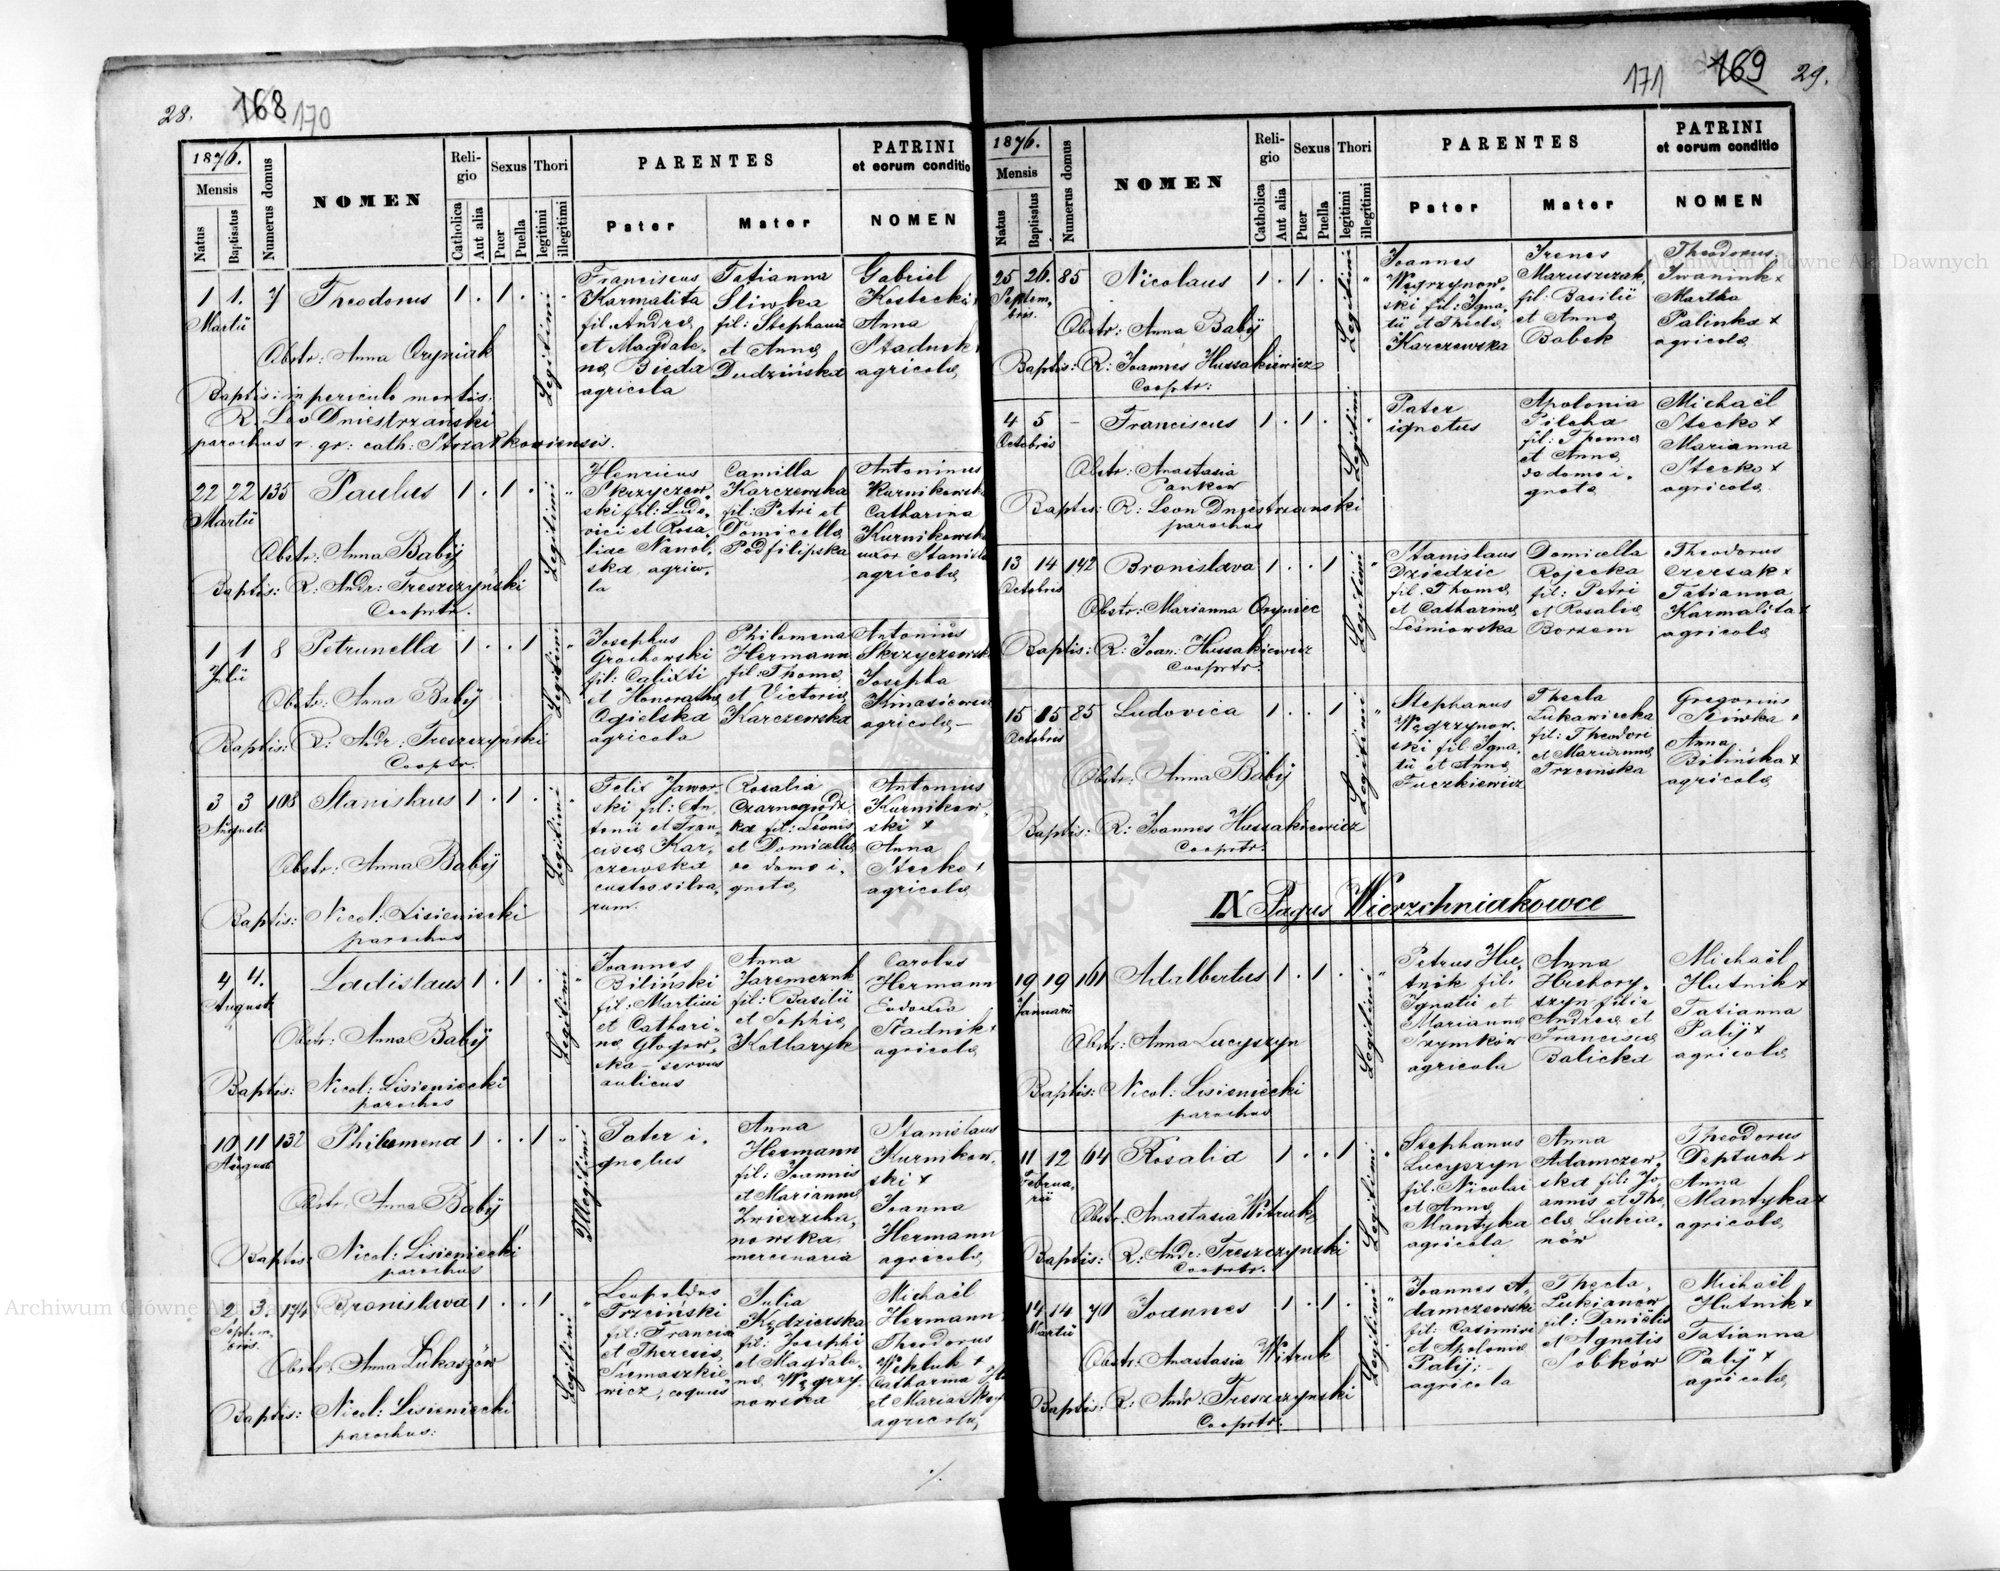 28. 168 170
1876.
Mensis
Natus
Baptisatus
Numerus domus
NOMEN
Reli-
gio
Catholica
Aut alia
Sexus
Puer
Puella
Thori
legitimi
illegitimi
PARENTES
Pater
Mater
PATRINI
et eorum conditio
NOMEN
1 1. 7 Theodorus 1 . 1 .
Martii
Obstr: Anna Oryniak
Baptis: in periculo mortis:
R. Leo Dniestrzański
parochus r. gr: cath:
Legitimi
Franciscus
Karmalita
fil. Andreæ
et Magdale-
næ Bieda
agricola
Tatianna
Sliwka
fil: Stephani
et Annæ
Dudzińska
Gabriel
Kostecki
Anna
Staduck
agricolæ
22 22 135 Paulus 1 . 1 .
Martii
Obstr: Anna Babij
Baptis: R: Andr: Treszczyński
Cooprtr.
Legitimi
Henricus
Skrzyczew-
ski fil: Ludo-
vici et Rosa-
liae Nanol-
ska agrico-
la
Camilla
Karczewska
fil: Petri et
Domicellæ
Podfilipska
Antoninus
Kurnikowski
Catharina
Kurnikowska
uxor Stanisla
agricolæ
1 1 8 Petrunella 1 . . 1
Julii
Obstr: Anna Babij
Baptis: R: Andr: Treszczyński
Cooptr.
Legitimi
Josephus
Grochowski
fil: Calixti
et Honorathæ
Ogielska
agricola
Philomena
Hermann
fil: Thomæ
et Victoriæ
Karczewska
Antonius
Skrzyczewski
Josepha
agricolæ
3 3 108 Stanislaus 1 . 1 .
Augusti
Obstr: Anna Babij
Baptis: Nicol: Lisieniecki
parochus
Legitimi
Felix Jawor-
ski fil: An-
tonii et Fran-
ciscæ Kar-
czewska
custos silva-
rum.
Rosalia
Czarnogrodz-
ka fil: Leonis
et Domicellæ
de domo i-
gnotæ
Antonius
Kurnikow-
ski x
Anna
Stecko
agricolæ
4 4. Ladislaus 1 . 1 .
Augusti
Obstr: Anna Babij
Baptis: Nicol: Lisieniecki
parochus
Legitimi
Joannes
Biliński
fil: Martini
et Cathari-
næ Głogow-
ska - servus
aulicus
Anna
Jaremczuk
fil: Basilii
et Sophiæ
Kotlaryk
Carolus
Hermann
Eudoxia
Stadnik x
agricolæ
10 11 132 Philomena 1 . . 1
Augusti
Obstr: Anna Babij
Baptis: Nicol: Lisieniecki
parochus
Illegitimi
Pater i-
gnotus
Anna
Hermann
fil: Joannis
et Mariannæ
Zwierzcha-
nowska
mercenaria
Stanislaus
Kurnikow-
ski x
Joanna
Hermann
agricolæ
2 3. 174 Bronislava 1 . . 1
Septem-
bris.
Obstr: Anna Lukaszów
Baptis: Nicol: Lisieniecki
parochus:
Legitimi
Leopoldus
Trzciński
fil: Francis
et Theresiæ
Siemaszkie-
wicz, coquus
Julia
Kędzierska
fil: Josephi
et Magdale-
næ Węgrzy-
nowska
Michaël
Hermann
Theodorus
Catharina
et Maria
agricolæ
171 169 29.
1876.
Mensis
Natus
Baptisatus
Numerus domus
NOMEN
Reli-
gio
Catholica
Aut alia
Sexus
Puer
Puella
Thori
legitimi
illegitimi
PARENTES
Pater
Mater
PATRINI
et eorum conditio
NOMEN
25 26. 85 Nicolaus 1 . 1 .
Septem-
bris.
Obstr: Anna Babij
Baptis: R: Joannes Hussakiewicz
Cooptr:
Legitimi
Joannes
Węgrzynow-
ski fil: Igna-
tii et Theclæ
Karczewska
Irenes
Maruszczak,
fil: Basilii
et Annæ
Babek
Theodorus
Iwaniuk x
Martha
Palinka x
agricolæ
4 5 - Franciscus 1 . 1 .
Octobris
Obstr: Anastasia
Pankow
Baptis: R: Leon Dniestrzanski
parochus
Legitimi
Pater
ignotus
Apolonia
Pilcha
fil: Thomæ
et Annæ
de domo i-
gnotæ
Michaël
Stecko x
Marianna
Stecko x
agricolæ.
13 14 142 Bronislava 1 . . 1
Octobris
Obstr: Marianna Oryniec
Baptis: R: Joan: Hussakiewicz
Cooprtr:
Legitimi
Stanislaus
Dziedzic
fil. Thomæ
et Catharinæ
Leśniowska
Domicella
Rojecka
fil: Petri
et Rosaliæ
Borsem
Theodorus
Czersak x
Tatianna
Karmalita x
agricolæ
15 15 85 Ludovica 1 . . 1
Octobris
Obstr: Anna Babij
Baptis: R: Joannes Hussakiewicz
Cooprtr:
Legitimi
Stephanus
Węgrzynow-
ski fil Igna-
tii et Annæ
Fuczkiewicz
Thecla
Lukawiecka
fil: Theodori
et Mariannæ
Trzcińska
Gregorius
Sliwka
Anna
Bilińska x
agricolæ
IX Pagus Wierzchniakowce
19 19 161 Adalbertus 1 . 1 .
Januarii
Obstr: Anna Lucyszyn
Baptis: Nicol: Lisieniecki
parochus
Legitimi
Petrus Hu-
tnik fil:
Ignatii et
Mariannæ
Szymków
agricola
Anna
Hrehory-
szyn filia
Andreæ et
Franciscæ
Balicka
Michaël
Hutnik x
Tatianna
Palij x
agricolæ
11 12 64 Rosalia 1 . . 1
Februa-
rii
Obstr: Anastasia Witruk
Baptis: R: Andr: Treszczynski
Cooprtr.
Legitimi
Stephanus
Lucyszyn
fil. Nicolai
et Annæ
Mantyka
agricola
Anna
Adamczew-
ska fil: Jo-
annis et The-
clæ Lukia-
nów
Theodorus
Deptuch x
Anna
Mantyka x
agricolæ
14 14 70 Joannes 1 . 1 .
Martii
Obstr: Anastasia Witruk
Baptis: R: Andr: Treszczynski
Cooprtr:
Legitimi
Joannes A-
damczewski
fil: Casimiri
et Apoloniæ
Palij:
agricola
Thecla
Lukianow
fil: Danielis
et Agnetis
Sobków
Michaël
Hutnik x
Tatianna
Palij x
agricolæ
Archiwum Główne Akt Dawnych
Archiwum Główne Akt Dawnych